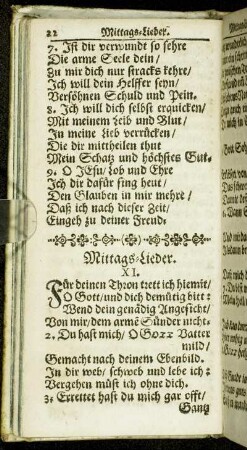 22 Mittags-Lieder.
7. Ist dir verwundt so sehre
Die arme Seele dein /
Zu mir dich nur stracks kehre /
Ich will dein Helffer seyn /
Versöhnen Schuld und Pein.
8. Ich will dich selbst erquicken /
Mit meinem Leib und Blut /
In meine Lieb verrücken /
Die dir mittheilen thut
Mein Schatz und höchstes Gut.
9. O JEsu / Lob und Ehre
Ich dir dafür sing heut /
Den Glauben in mir mehre /
Daß ich nach dieser Zeit /
Eingeh zu deiner Freud.
Mittags-Lieder.
XI.
Für deinen Thron trett ich hiemit /
O Gott / und dich demütig bitt:
Wend dein genädig Angesicht /
Von mir / dem armē Sünder nicht.
2. Du hast mich / O Gott Vatter
mild /
Gemacht nach deinem Ebenbild.
In dir web / schweb und lebe ich:
Vergehen müst ich ohne dich.
3. Errettet hast du mich gar offt /
Gantz